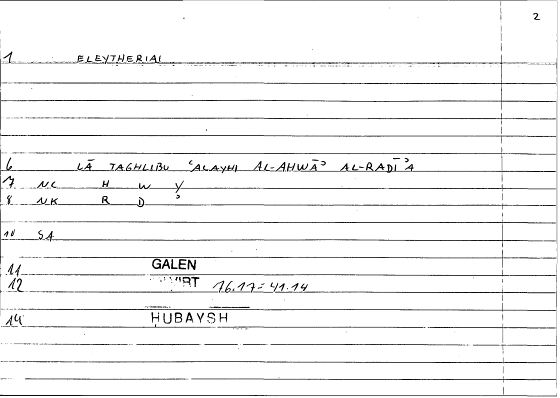 2
1 ELEYTHERIAI
6 LĀ TAGHLIBU ʿALAYHI AL-AHWĀʾ AL-RADĪʾA
7 NC H W Y
8 NK R D ʾ
10 SA
11 GALEN
12 16.17 = 41.14
14 ḤUBAYSH